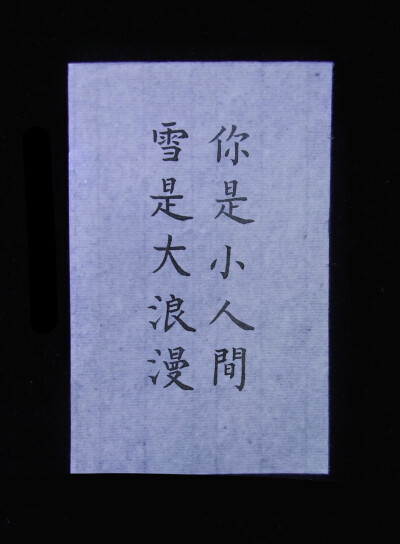 你是小人間
雪是大浪漫